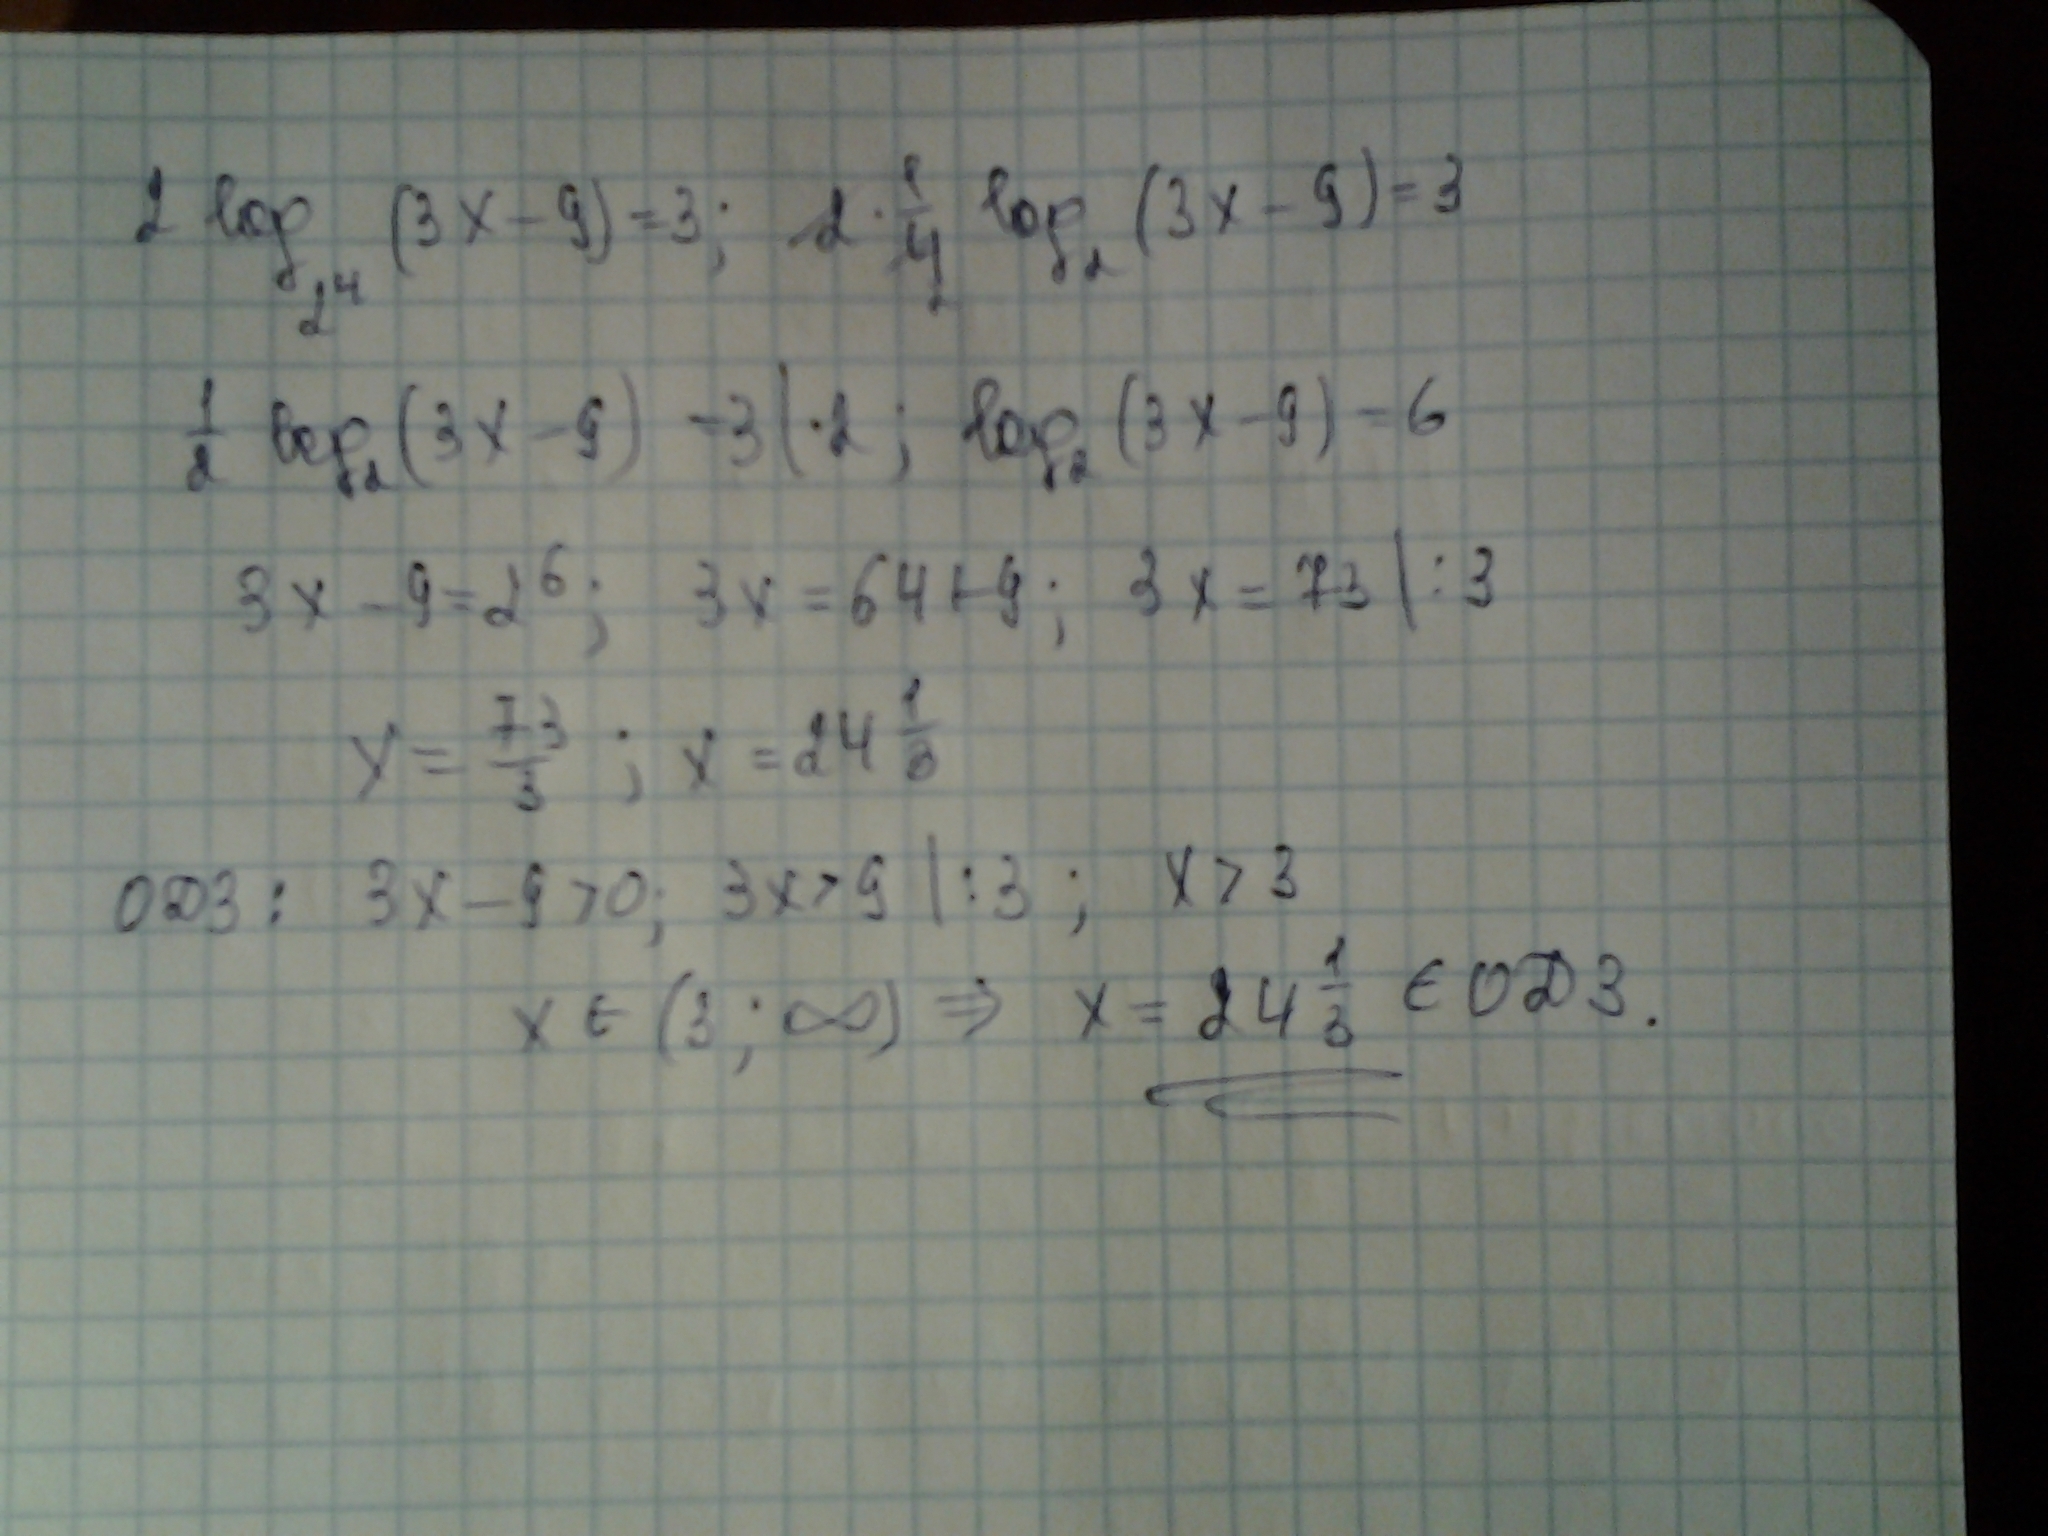 2 log_{2^4} (3x-9)=3; 2·1/4 log_2 (3x-9)=3
1/2 log_2 (3x-9) =3|·2; log_2 (3x-9)=6
3x-9=2^6; 3x=64+9; 3x=73|:3
x=73/3; x=24 1/3
ОДЗ: 3x-9>0; 3x>9|:3; x>3
x∈(3;∞) ⇒ x=24 1/3 ∈ ОДЗ.